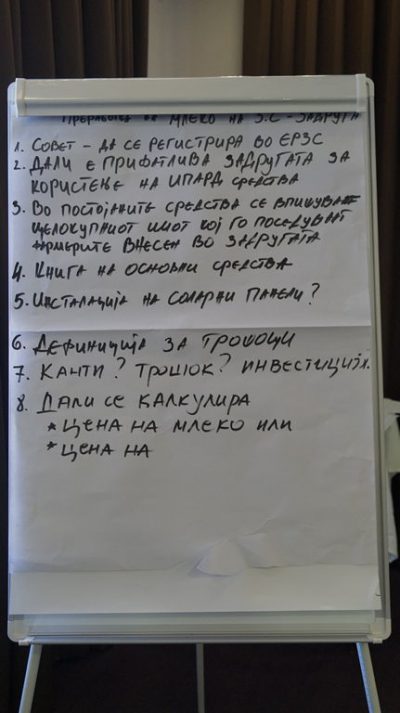 Преработка на млеко на З.С - Задруга
1. Совет - да се регистрира во ЕРЗС
2. Дали е прифатлива задругата за
користење на ИПАРД средства
3. Во постојаните средства се впишуваат
целокупниот имот кој го поседуваат
фармерите внесен во задругата
4. Книга на основни средства
5. Инсталација на соларни панели?
6. Дефиниција за трошоци
7. Канти? Трошок? Инвестиција.
8. Дали се калкулира
* цена на млеко или
* цена на